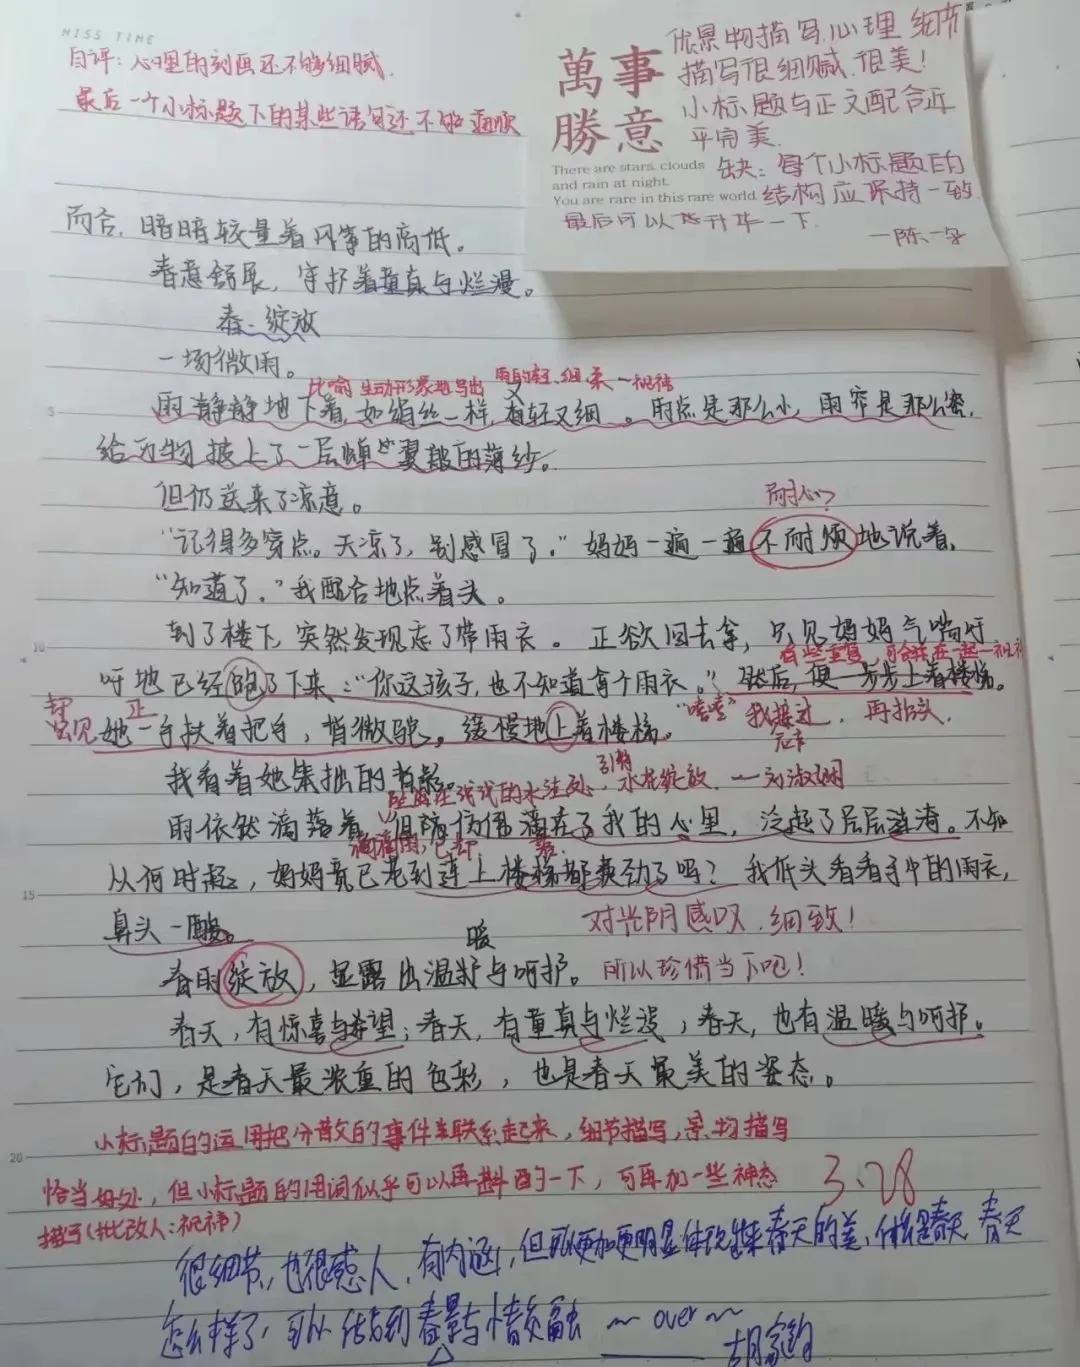 MISS TIME
自评：心理的刻画还不够细腻.
最后一个小标题下的某些语句还不够通顺
萬事
勝意
There are stars, clouds
and rain at night.
You are rare in this rare world
优景物描写,心理 细节
描写很细腻.很美!
小标题与正文配合近
乎完美.
缺: 每个小标题的
结构应保持一致
最后可以 升华一下.
暗暗较量着风筝的高低。
春意舒展，守护着童真与烂漫。
春·绽放
一场微雨。
比喻 生动形象地写出 雨的轻、细、柔 一祝祎
雨静静地下着,如绢丝一样,有轻又细。雨点是那么小，雨帘是那么密,
给万物披上了一层 翼 的薄纱。
但仍送来了凉意。
耐心?
“记得多穿点。天凉了，别感冒了。”妈妈一遍一遍不耐烦地说着,
“知道了。”我配合地点着头。
到了楼下,突然发现忘了带雨衣。正欲回去拿，只见妈妈气喘吁
有些重复 可合并在一起一祝祎
吁地已经跑了下来:“你这孩子,也不知道拿个雨衣。”然后,便一步步上着楼梯。
却 正 我接过，再抬头.
只见她一手扶着把手，背微驼，缓慢地上着楼梯。
我看着她笨拙的背影。
水花绽放. 一刘淑娴
雨依然滴落着,但 滴在了我的心里，泛起了层层涟漪。不知
从何时起，妈妈竟已老到连上楼梯都费劲了吗？我低头看看手中的雨衣，
鼻头一酸。
对光阴感叹.细致!
暖
春雨绽放，显露出温护与呵护。
所以珍惜当下吧!
春天，有惊喜与希望；春天，有童真与烂漫；春天，也有温暖与呵护。
它们，是春天最浓重的色彩，也是春天最美的姿态。
小标题的运用把分散的事件关联系起来，细节描写,景物描写
恰当好处，但小标题的用词似乎可以再斟酌一下，可再加一些神态
描写(批改人:祝祎)
3.28
很细节,也很感人.有内涵,但 更加更明显体现出来春天的美, 春天,春天
怎么样了,可以 到春景与情交融 ～ over ～